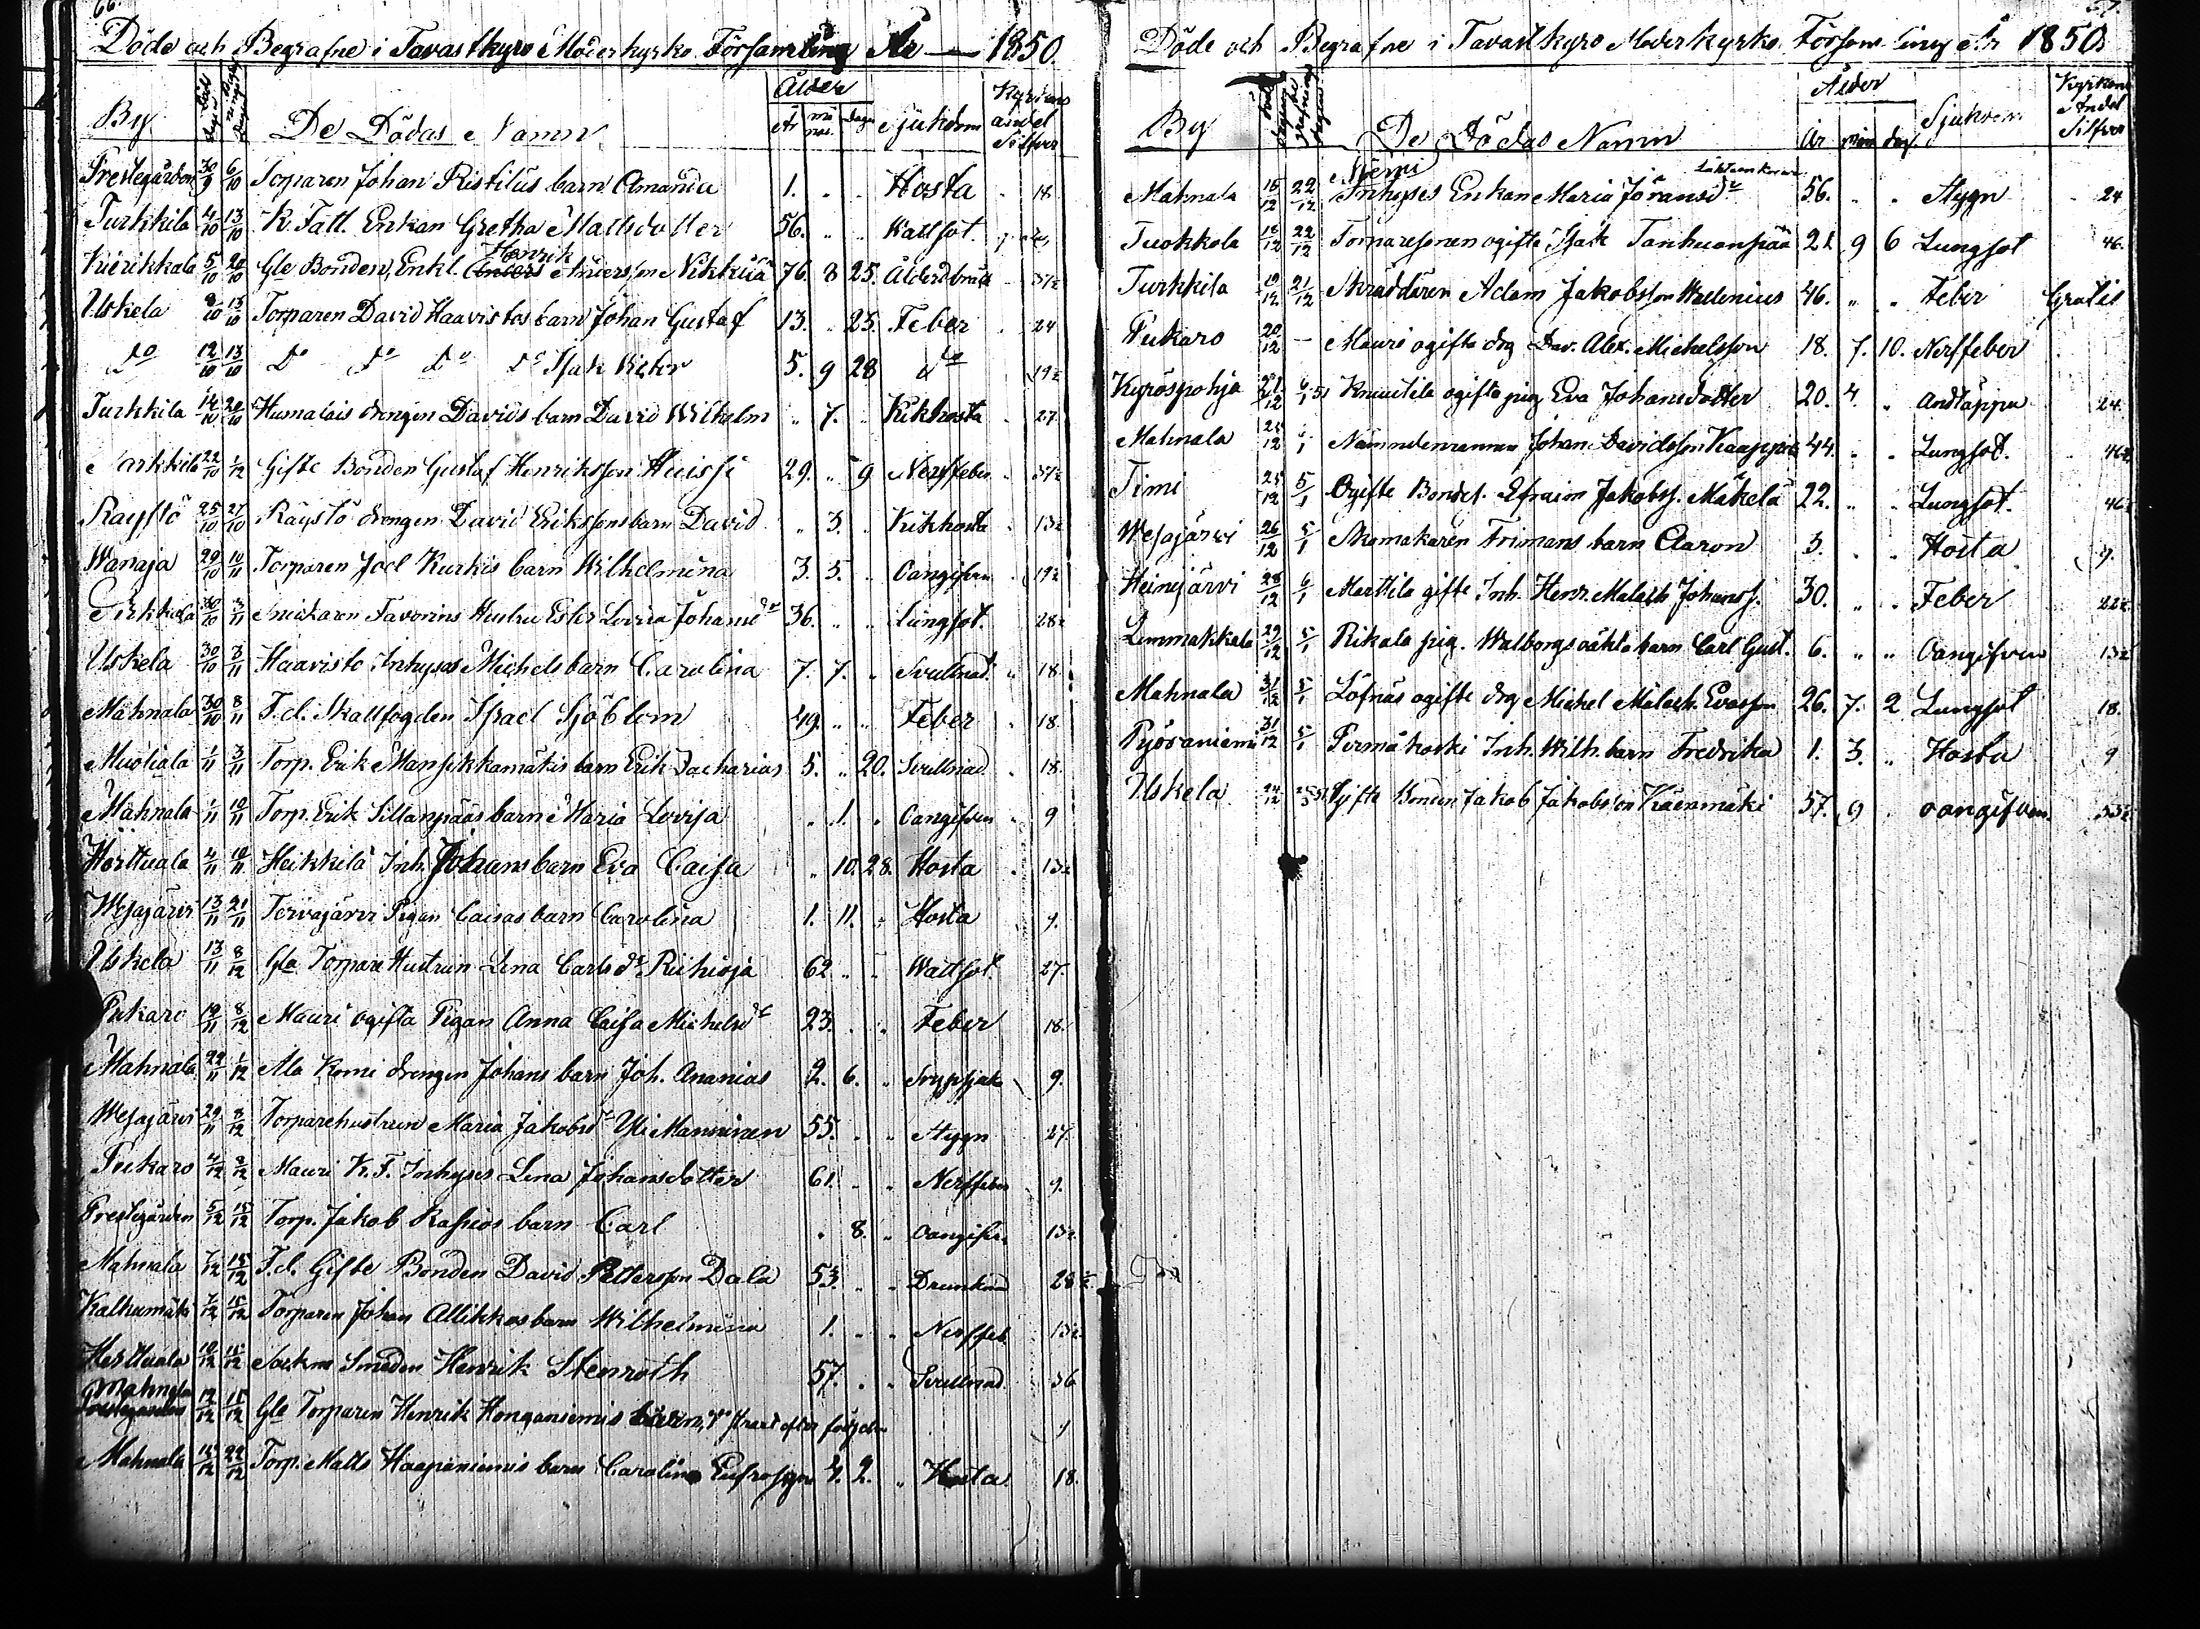 66.
Döde och Begrafne i Tavastkyro Moderkyrko Församling År — 1850.
By Död dagen De Dödas Namn Ålder År må nar. dagar Sjukdom Kyrkans andel Silfver
Prestegården 30/9 6/10 Torparen Johan Ristilus barn Amanda 1. " " Hosta 18
Turkkila 4/10 13/10 K. Fatt. Enkan Gretha Mattsdotter 56. " " Wattsot.
Kierikkala 5/10 20/10 Gle Bonden, Enkl. Anders Henrik Andersson Kikkuä 76. 8 25. Ålderdbräck 37½
Uskela 8/10 13/10 Torparen David Haavistos barn Johan Gustaf 13. " 25. Feber 24
Do 12/10 13/10 Do Do Do Do Isak Victor 5. 9 28 Do 19½
Turkkila 14/10 20/10 Humalais drengen Davids barn David Wilhelm " 7. " Kikhosta 27
Turkkila 22/10 1/12 Gifte Bonden Gustaf Henriksson Huissi 29. " 9 Nerffeber 37½
Räystö 25/10 27/10 Räystö drengen David Erikssons barn David " 3. " Kikhosta 13½
Wanaja 29/10 10/11 Torparen Joel Kurkis barn Wilhelmina 3. 5. " Oangifven 19½
30/10 3/11 Snickaren Favorins Hustru Ester Lovisa Johansdr 36. " " Lungsot. 28½
Uskela 30/10 3/11 Haavisto Inhyses Michels barn Carolina 7. 7. " Svullnad. 18
Mahnala 30/10 8/11 F.d. Skallfogden Israel Sjöblom 49. " " Feber 18
Muotiala 1/11 3/11 Torp. Erik Mansikkamäkis barn Erik Zacharias 5. " 20. Svullnad. 18.
Mahnala 1/11 10/11 Torp. Erik Sillanpääs barn Maria Lovisa " 1. " Oangifven 9
Herttuala 4/11 10/11 Heikkilä Inh. Johans barn Eva Caisa " 10. 28. Hosta 13½
Wesajärvi 13/11 21/11 Tervajärvi Pigan Caisas barn Carolina 1. 11. " Hosta 9.
Uskela 13/11 8/12 Gla Torpare Hustrun Lena Carlsdr Riihioja 62 " " Wattsot. 27.
Pukaro 19/11 8/12 Mauri ogifta Pigan Anna Caisa Michelsdr 23. " " Feber 18.
Mahnala 22/11 1/12 Ala Komi drengen Johans barn Joh. Ananias 2. 6. " Strypsjuk 9.
Wesajärvi 29/11 8/12 Torparehustrun Maria Jakobsdr Yli Manninen 55. " " Stygn 27.
Pukaro 4/12 8/12 Mauri K. F. Inhyses Lena Johansdotter 61. " " Nerffeber 9.
Prestegården 5/12 15/12 Torp. Jakob Raskios barn Carl " 8. " Oangifven 13½
Mahnala 7/12 15/12 F.d. Gifte Bonden David Pettersson Dala 53. " " Drunknad 28½
Kalkumäki 7/12 15/12 Torparen Johan Allikkos barn Wilhelmina 1. " " Nerffeb. 13½
Herttuala 10/12 15/12 Sockne Smeden Henrik Stenroth 57. " " Svullnad 36
Mahnala Prestegården 12/12 15/12 Gle Torparen Henrik Honganiemis 9
Mahnala 15/12 22/12 Torp. Matts Haapaniemis barn Carolina Eufrosyne 4. 2. " Hosta 18.
67.
Döde och Begrafne i Tavastkyro Moderkyrko Församling År 1850.
By De Dödas Namn Ålder År mån dag. Sjukdom Kyrkans Andel Silfver
Mahnala 15/12 22/12 Niemi Inhyses Enkan Maria Göransdr 56. " " Stygn 24
Tuokkola 18/12 22/12 Torparesonen ogifte Isak Tanhuanpää 21 9 6 Lungsot 46.
Turkkila 19/12 21/12 Skräddaren Adam Jakobsson Wallenius 46. " " Feber Gratis
Pukaro 20/12 — Mauri ogifte drg Dav. Alex. Michelsson 18. 7. 10. Nerffeber
Kyröspohja 21/12 6/1 51 Knuutila ogifta pig. Eva Johansdotter 20. 4. " Andtäppa 24.
Mahnala 25/12 6/1 Nämndemannen Johan Davidsson Kaappola 44. " " Lungsot. 46½
Timi 25/12 5/1 Ogifte Bondes. Efraim Jakobss. Mäkelä 22. " " Lungsot. 46½
Wesajärvi 26/12 5/1 Skomakaren Frimans barn Aaron 3. " " Hosta 9.
Heinijärvi 28/12 6/1 Marttila gifte Inh. Henr. Malach Johanss. 30. " " Feber 22½
Lemmakkala 29/12 5/1 Rikala pig. Walborgs oäkta barn Carl Gust. 6. " " Oangifven 13½
Mahnala 31/12 5/1 Löfnäs ogifte drg Michel Malach. Evasson 26. 7. 2. Lungsot 18.
Pyöräniemi 31/12 5/1 Permäkoski Inh. Wilh. barn Fredrika 1. 3. " Hosta 9
Uskela 24/12 Gifte Bonden Jakob Jakobsson Käenmäki 57. 9 " oangifven. 53½